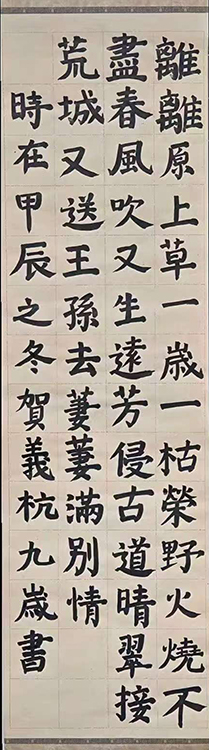 離離原上草一歲一枯榮野火燒不
盡春風吹又生遠芳侵古道晴翠接
荒城又送王孫去萋萋滿別情
時在甲辰之冬賀義杭九歲書